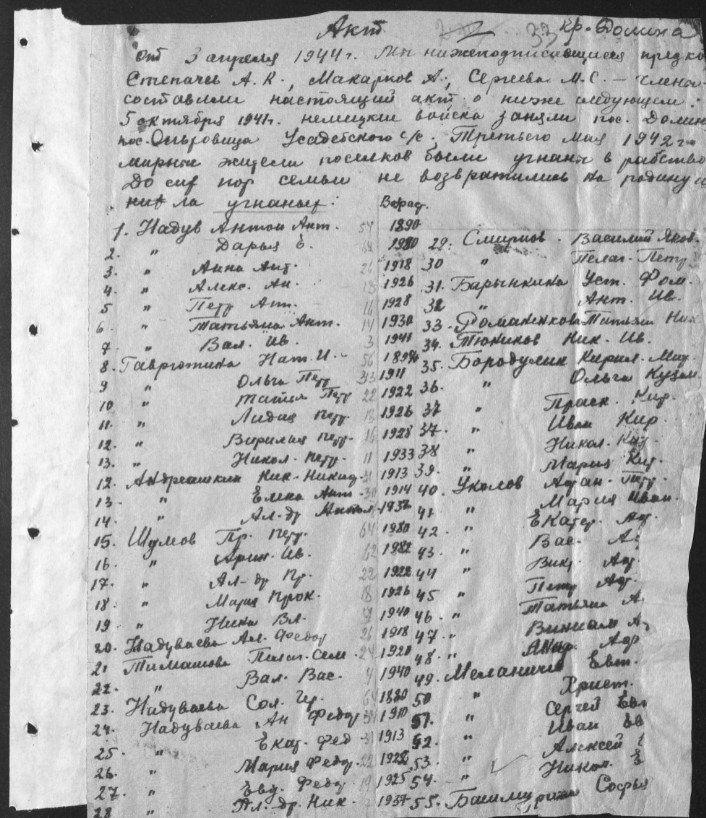 Акт 33 кр-Домина
от 3 апреля 1944 г. Мы нижеподписавшиеся
Степачев А.К., Макарков А., Сергеева М.С. - члена
составили настоящий акт о ниже следующем:
5 октября 1941г. немецкие войска заняли пос. Домин
пос. Усадебского с/с. Третьего мая 1942 г.
мирные жители поселков были угнаны в рабство
До сих пор семьи не возвратились на родину и
угнаные:
Возрас.
1. Надув Антон Ант. 54 1890
2. " Дарья 64 1880
3. " Анна Ант. 26 1918
4. " Алекс. Ан. 1926
5. " Петр Ант. 16 1928
6. " Татьяна Ант. 14 1930
7. " Вал. Ив. 3 1941
8. Нат. И. 56
9 " Ольга Петр 33 1911
10 " Петр 22 1922
11. " Лидия Петр. 1926
12. " Петр. 16 1928
13. " Никол. Петр. 11 1933
12. Андреашкин Ник. 31 1913
13. " Елена Ант. 30 1914
14. " Ал-др
15. Шумов Пр. Петр. 64 1880
16. " Ив. 62 1882
17. " Ал-др Пр. 22 1922
18. " Мария Прок. 18 1926
19. " Нина Вл. 1940
20. Надуваева Ал. Федор 26 1918
21 Тимашова Пелаг. Сем. 24 1920
22. " Вал. Вас. 4 1940
23. Надуваева Сол. Гр. 64 1880
24. Надуваева Ан Федор
25 " Екат. Фед 31 1913
26. " Мария Федор. 22 1922
27. " Евд. Федор 19 1925
28 " Ал-др. Ник. 7 1937
29. Смирнов Василий Яков.
30 " Пелаг. Петр
31. Барынкина Уст. Фом.
32 " Ант. Ив.
33. Романенкова Татьяна Ник
34. Тюников Ник. Ив.
35. Кирил. Мир.
36. " Ольга Кузьм.
37 " Праск. Кир.
37. " Иван Кир.
38 " Никол. Кир.
39. " Мария Кир.
40. Уколов Адам. Петр.
41. " Мария Иван.
42. " Екатер. Ад.
43. " Вас. Ад
44 " Викт. Ад.
45 " Петр Ад.
46. " Татьяна А
47. " А
48. " Адр
49. Меланичев Евт.
50 " Христ.
51. " Сергей Евт
52. " Иван Ев
53. " Алексей
54. " Никол. Е
55. Софья